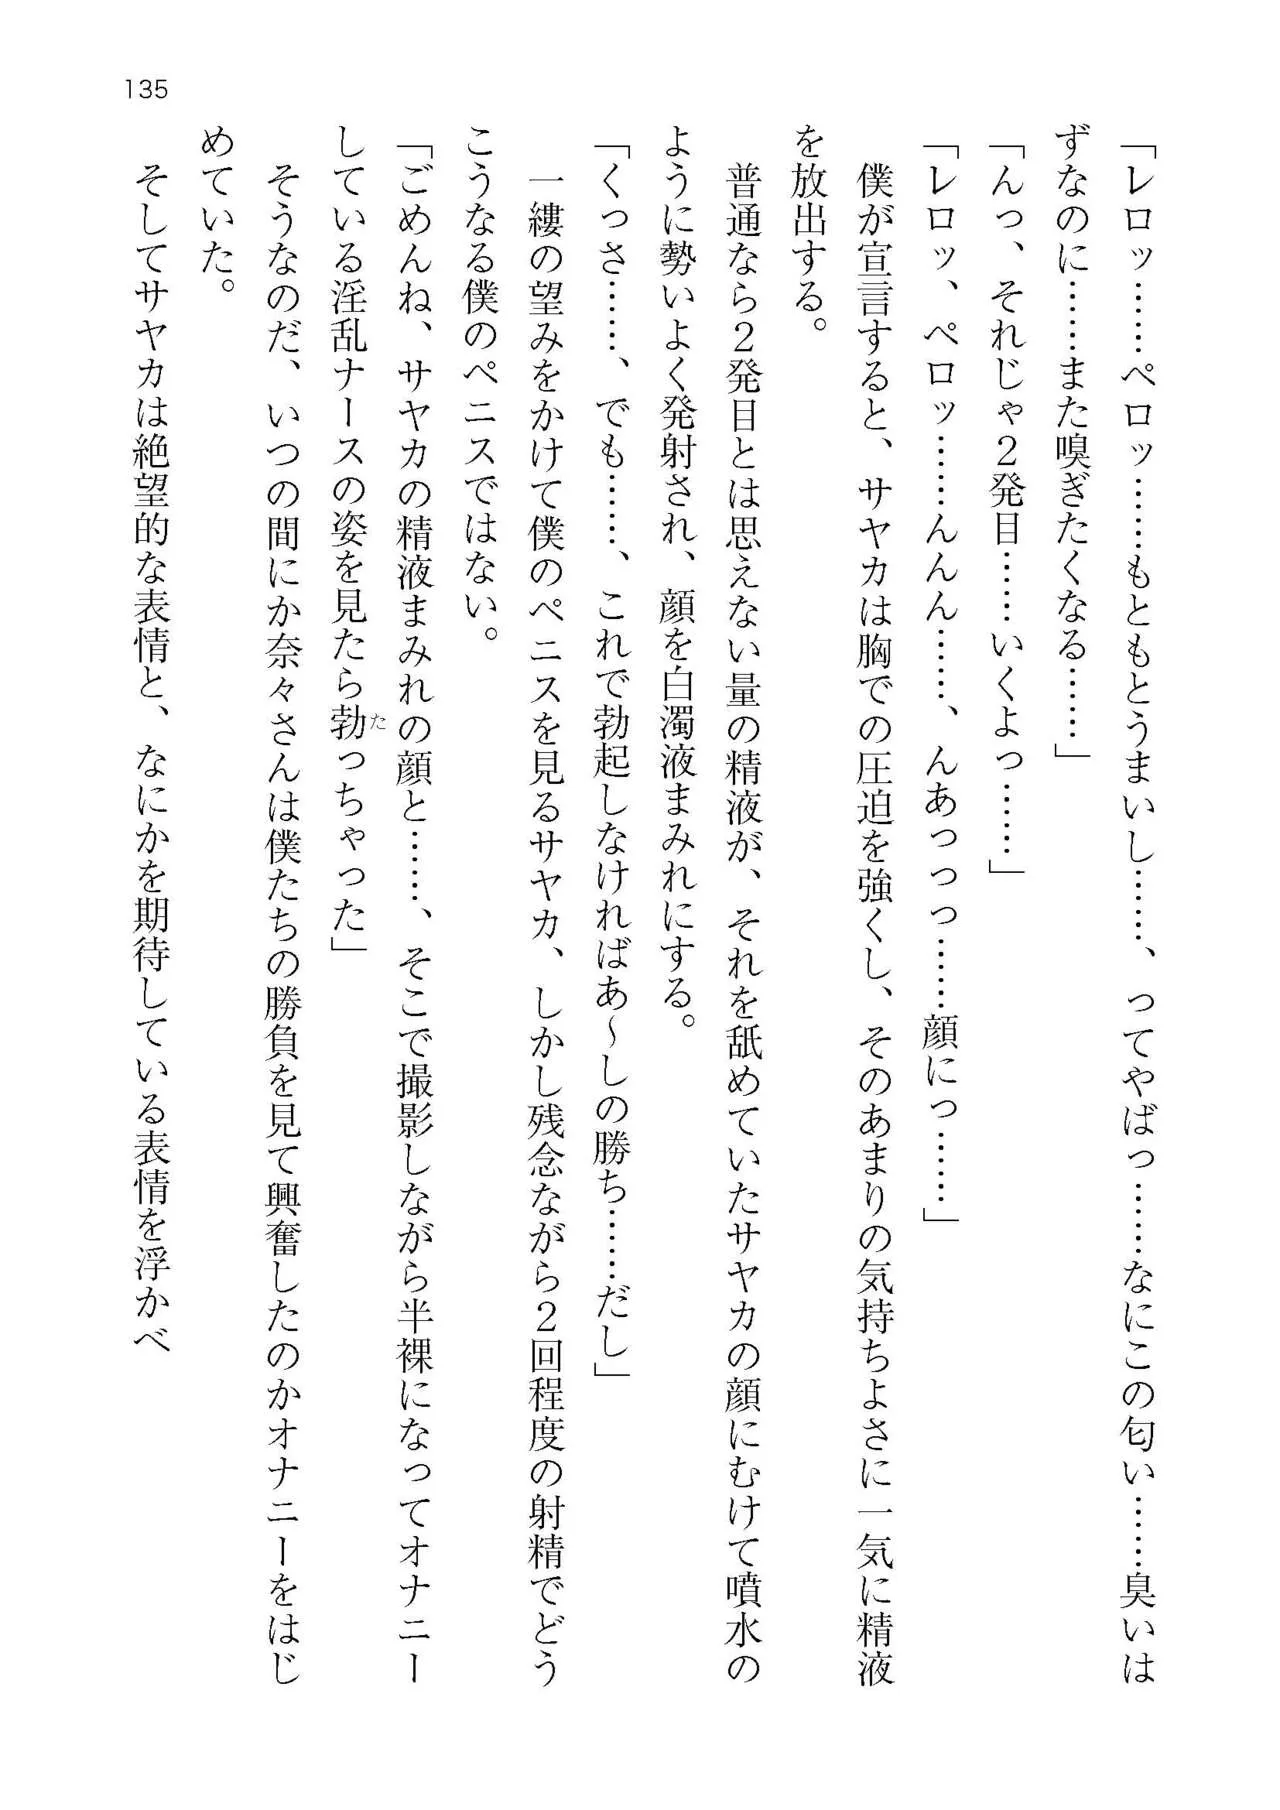 135
「レロッ……ペロッ……もともとうまいし……、ってやばっ……なにこの匂い……臭いは
ずなのに……また嗅ぎたくなる……」
「んっ、それじゃ2発目……いくよっ……」
「レロッ、ペロッ……んんん……、んあっっっ……顔にっ……」
僕が宣言すると、サヤカは胸での圧迫を強くし、そのあまりの気持ちよさに一気に精液
を放出する。
普通なら2発目とは思えない量の精液が、それを舐めていたサヤカの顔にむけて噴水の
ように勢いよく発射され、顔を白濁液まみれにする。
「くっさ……、でも……、これで勃起しなければあ～しの勝ち……だし」
一縷の望みをかけて僕のペニスを見るサヤカ、しかし残念ながら2回程度の射精でどう
こうなる僕のペニスではない。
「ごめんね、サヤカの精液まみれの顔と……、そこで撮影しながら半裸になってオナニー
している淫乱ナースの姿を見たら勃っちゃった」
た
そうなのだ、いつの間にか奈々さんは僕たちの勝負を見て興奮したのかオナニーをはじ
めていた。
そしてサヤカは絶望的な表情と、なにかを期待している表情を浮かべ